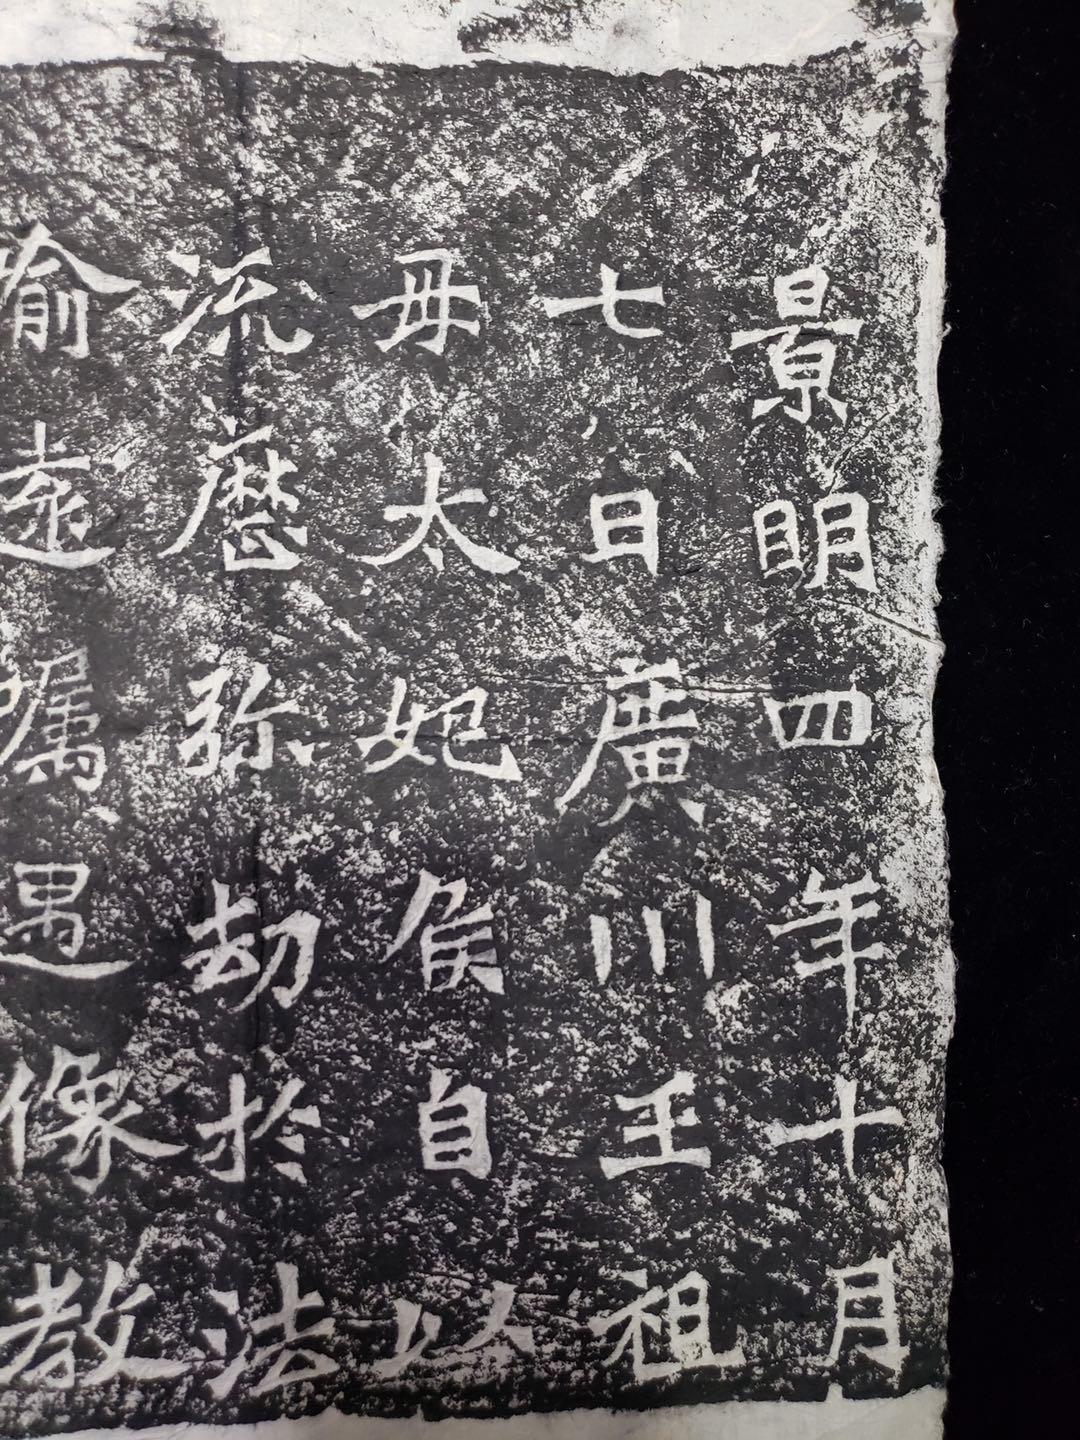 景眀四年十月
七日廣川王祖
母太妃侯自以
流歷弥劫於法
喻遠嘱遇像教